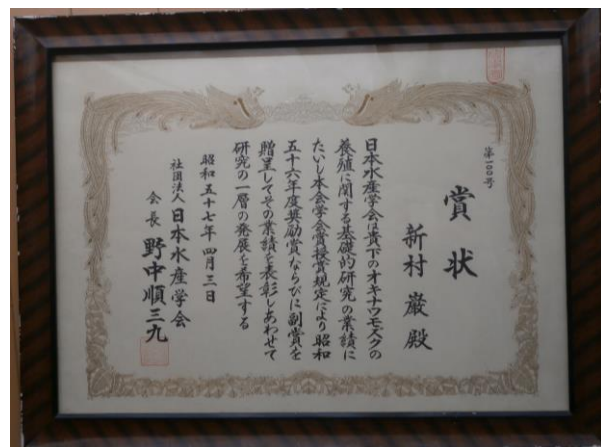 第一〇〇号
賞状
新村 巌 殿
日本水産学会は貴下のオキナワモズクの
養殖に関する基礎的研究の業績に
たいし本会学会賞授賞規定により昭和
五十六年度奨励賞ならびに副賞を
贈呈してその業績を表彰しあわせて
研究の一層の発展を希望する
昭和五十七年四月三日
社団法人 日本水産学会
会長 野中順三九